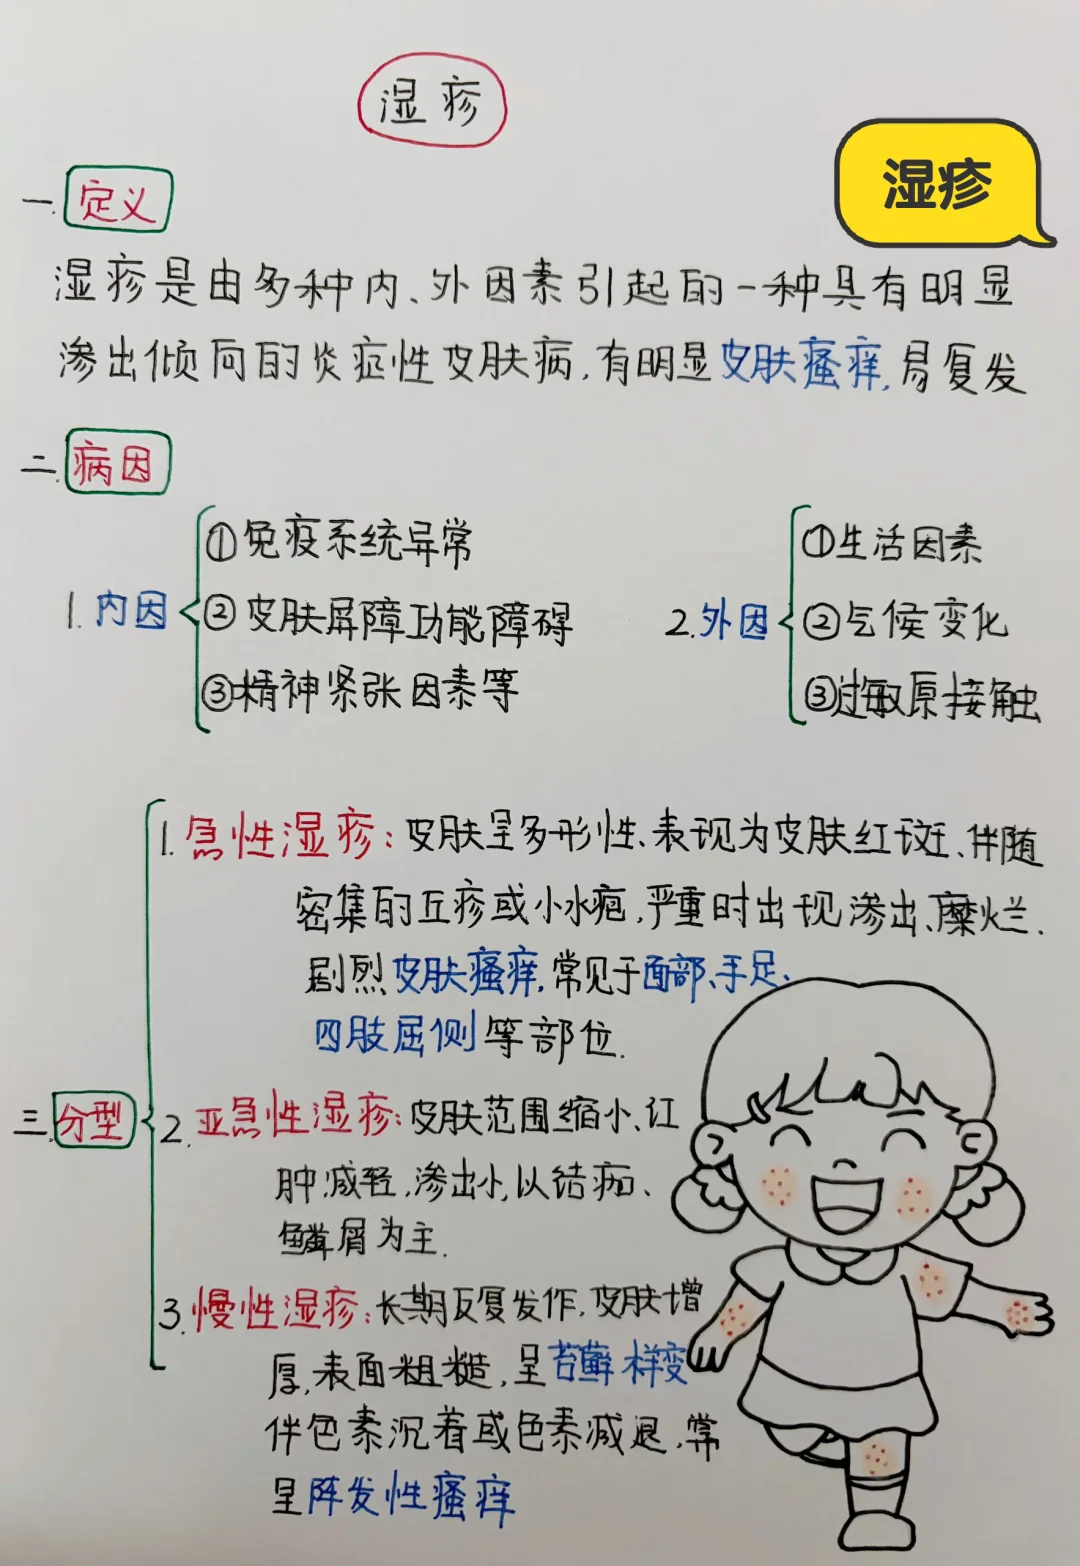 湿疹
湿疹
一.定义
湿疹是由多种内、外因素引起的一种具有明显
渗出倾向的炎症性皮肤病,有明显皮肤瘙痒,易复发
二.病因
1.内因
①免疫系统异常
②皮肤屏障功能障碍
③精神紧张因素等
2.外因
①生活因素
②气候变化
③过敏原接触
三.分型
1.急性湿疹:皮肤呈多形性、表现为皮肤红斑、伴随
密集的丘疹或小水疱,严重时出现渗出、糜烂、
剧烈皮肤瘙痒,常见于面部、手足、
四肢屈侧等部位.
2.亚急性湿疹:皮肤范围缩小、红
肿减轻,渗出少,以结痂、
鳞屑为主.
3.慢性湿疹:长期反复发作,皮肤增
厚,表面粗糙,呈苔藓样变
伴色素沉着或色素减退,常
呈阵发性瘙痒